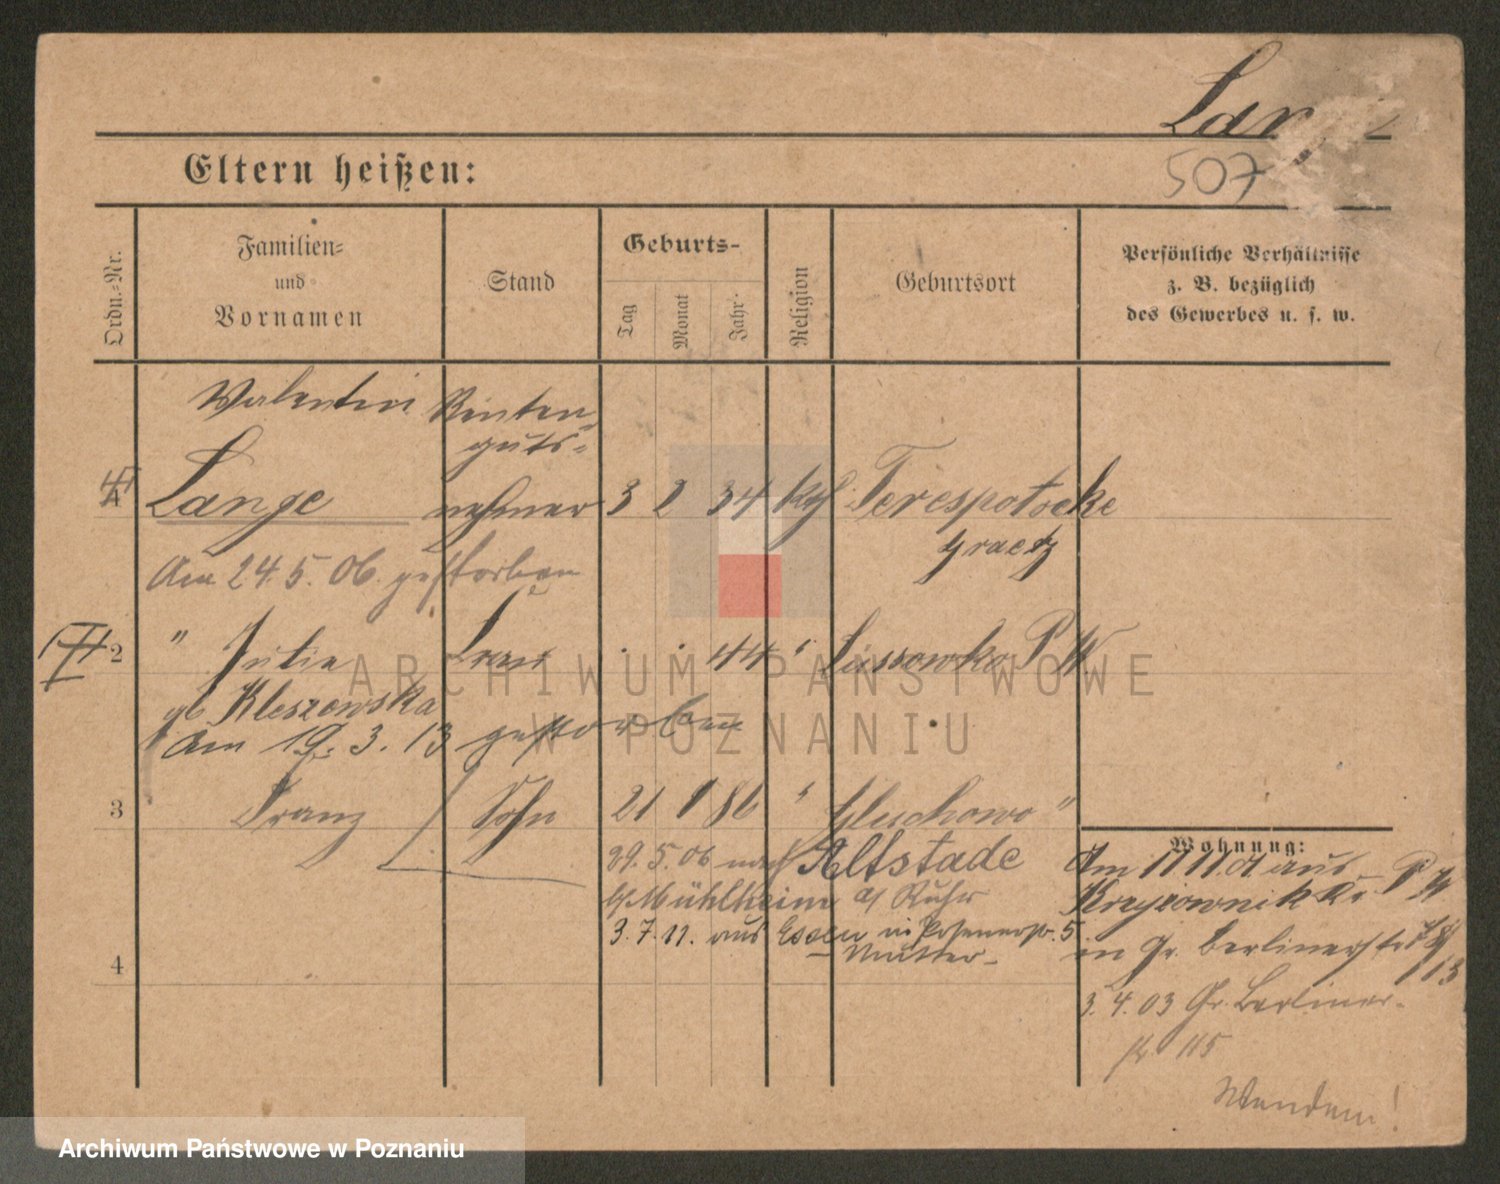 Lange
507
Eltern heißen:
Ordn.-Nr.
Familien-
und
Vornamen
Stand
Geburts-
Tag
Monat
Jahr
Religion
Geburtsort
Persönliche Verhältnisse
z. B. bezüglich
des Gewerbes u. s. w.
Valentin Renten
guts=
1 Lange nehmer 3 2 34 kth Terespotocke
Graetz
Am 24.5.06. gestorben
II 2 " Julie Frau . . 44 " Lussowko P W
gb Kleszewska
Am 19.3.13 gestorben
3 Franz Sohn 21 1 86 " Gluchowo "
29.5.06 nach Altstade
Mühlheim a/ Ruhr
3.7.11. aus Essen in Posenerstr. 5
Mutter
4
Wohnung:
Am 11 11 01 aus
P W
in Gr. Berlinerstr
113
3.4.03 Gr. Berliner-
str 115
Wenden!
ARCHIWUM PAŃSTWOWE
W POZNANIU
Archiwum Państwowe w Poznaniu